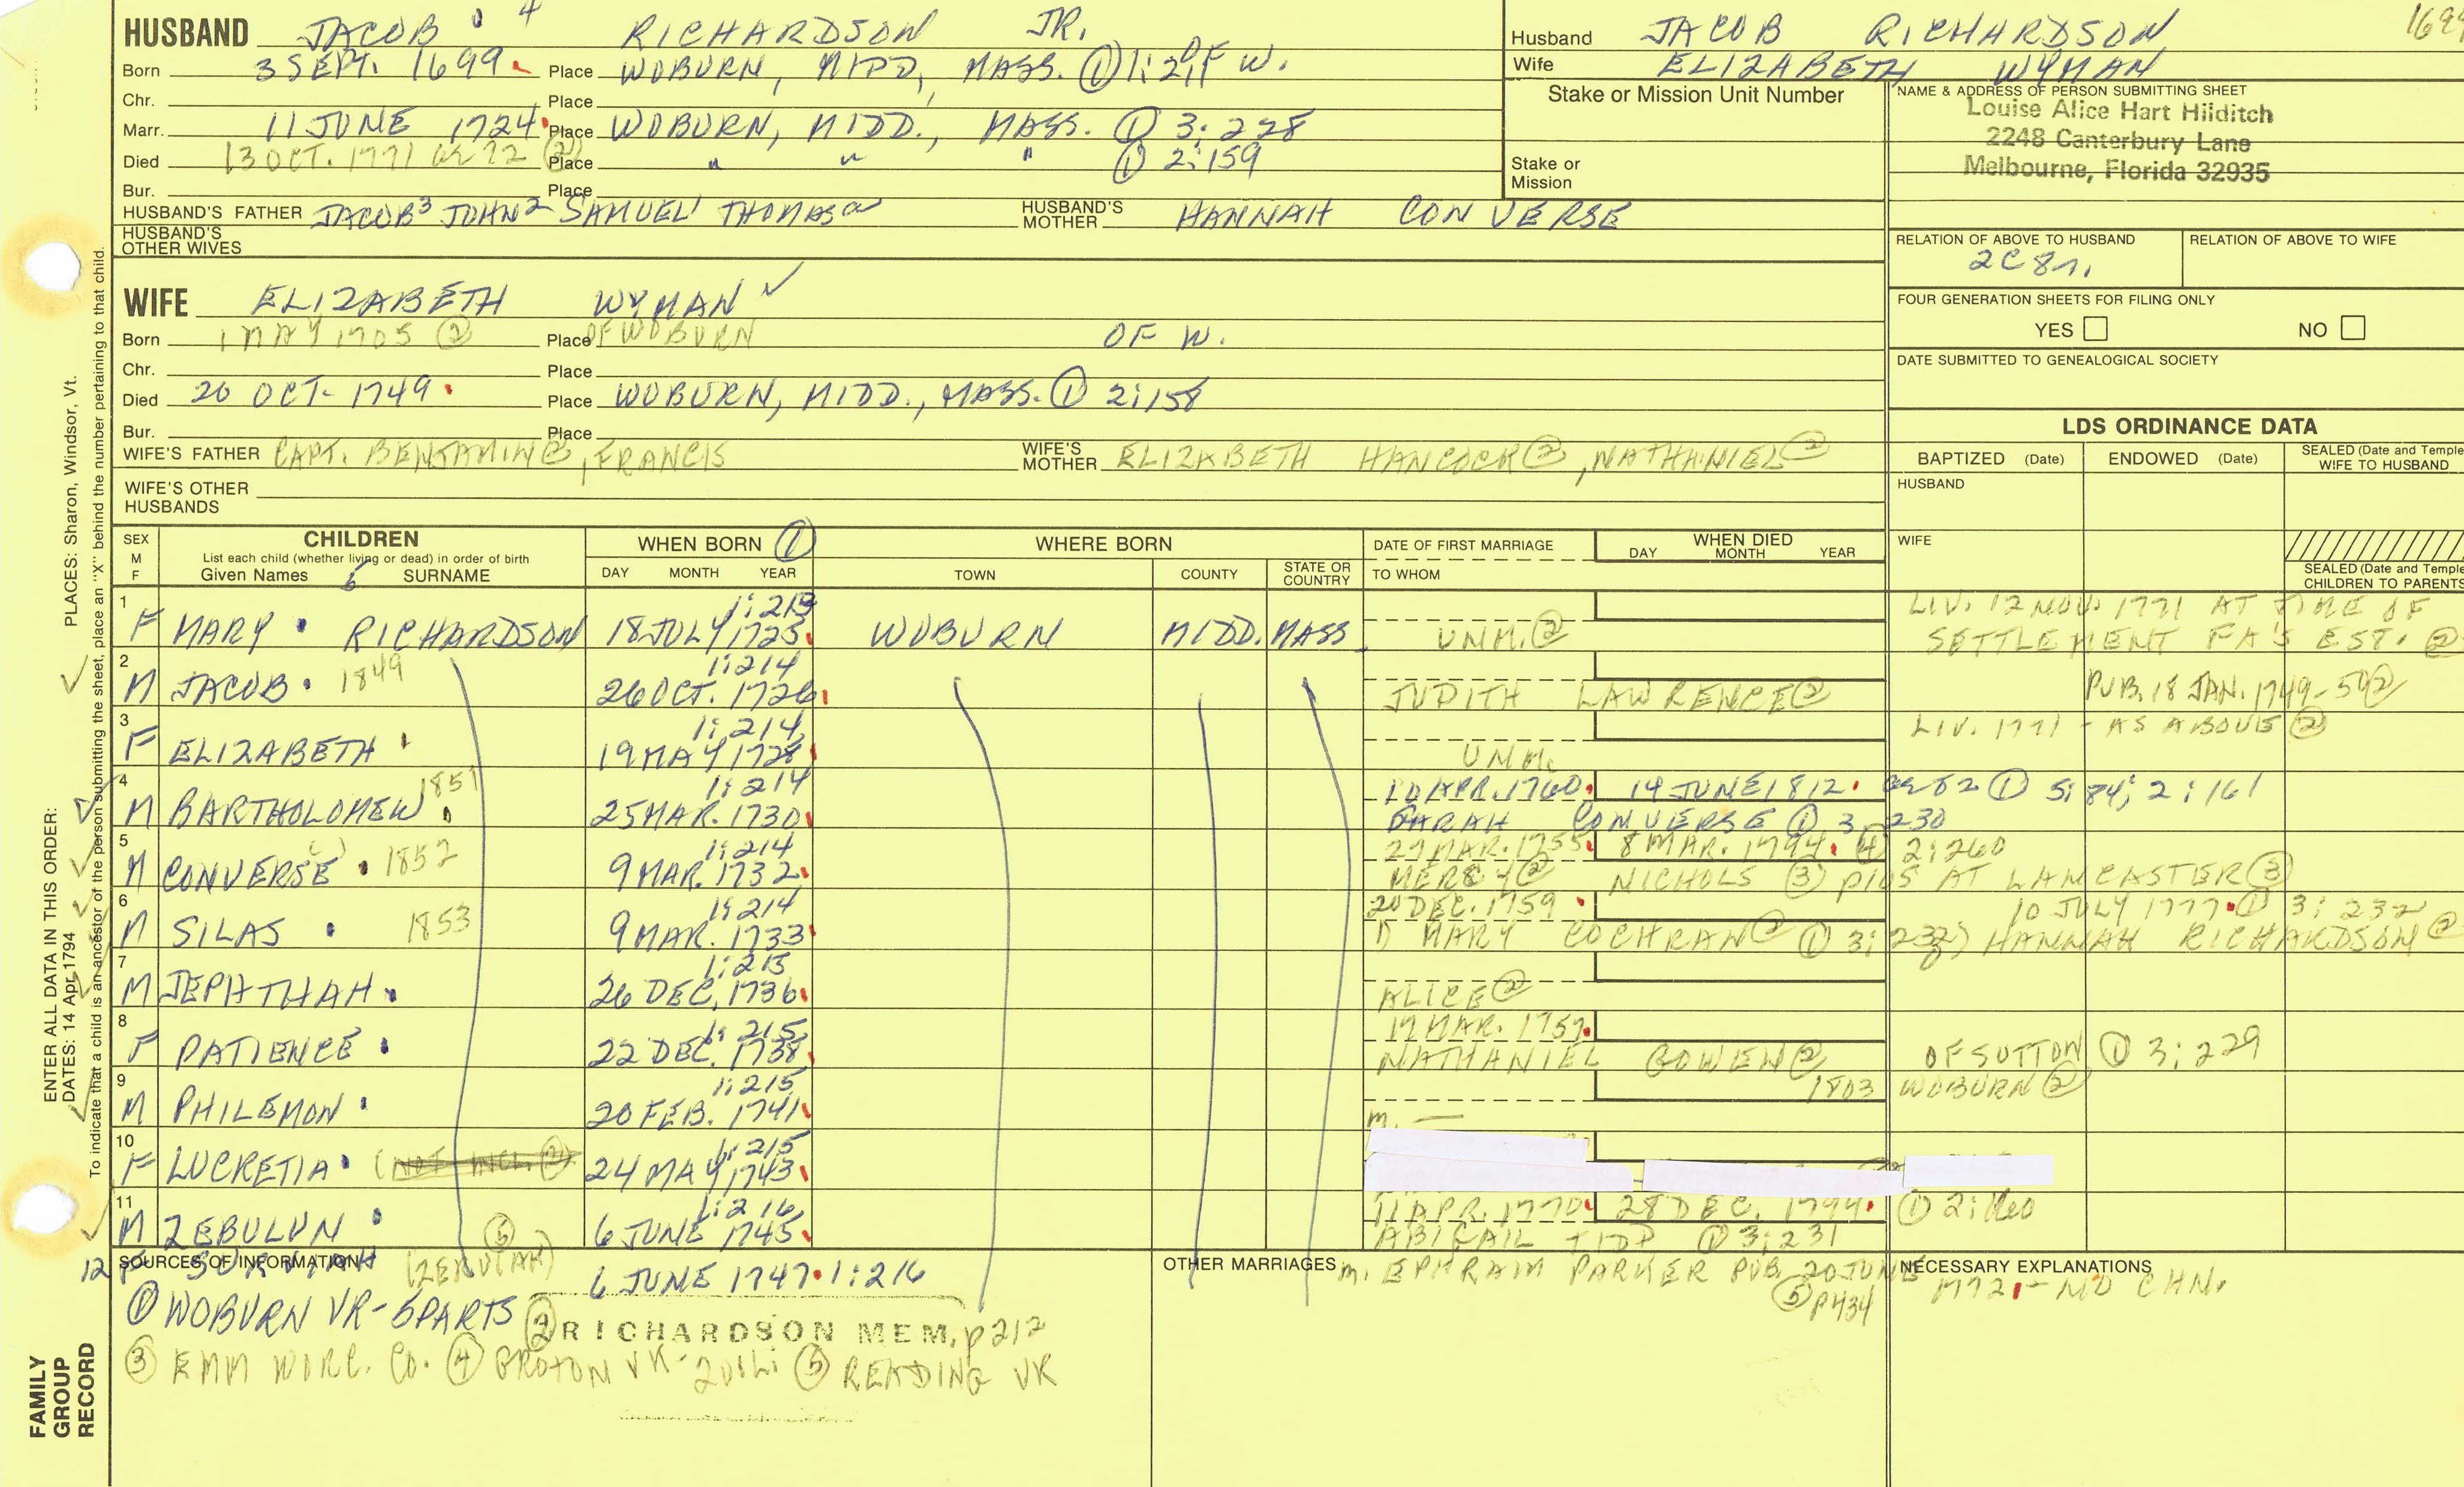 HUSBAND JACOB 4 RICHARDSON JR.
Born 3 SEPT. 1699 Place WOBURN, MIDD, MASS. ① 1:211 OF W.
Chr. Place
Marr. 11 JUNE 1724 Place WOBURN, MIDD., MASS. ① 3:228
Died 13 OCT. 1771 ae 72 ② Place " " " ① 2:159
Bur. Place
HUSBAND'S FATHER JACOB³ JOHN² SAMUEL¹ THOMASᵃ HUSBAND'S MOTHER HANNAH CONVERSE
HUSBAND'S OTHER WIVES
Husband JACOB RICHARDSON 1699
Wife ELIZABETH WYMAN
Stake or Mission Unit Number
Stake or Mission
NAME & ADDRESS OF PERSON SUBMITTING SHEET
Louise Alice Hart Hilditch
2248 Canterbury Lane
Melbourne, Florida 32935
RELATION OF ABOVE TO HUSBAND RELATION OF ABOVE TO WIFE
2C8r.
FOUR GENERATION SHEETS FOR FILING ONLY
YES NO
DATE SUBMITTED TO GENEALOGICAL SOCIETY
WIFE ELIZABETH WYMAN ✓
Born 1 MAY 1705 ② Place OF WOBURN OF W.
Chr. Place
Died 20 OCT. 1749 Place WOBURN, MIDD., MASS. ① 2:158
Bur. Place
WIFE'S FATHER CAPT. BENJAMIN ②, FRANCIS WIFE'S MOTHER ELIZABETH HANCOCK ②, NATHANIEL ②
WIFE'S OTHER HUSBANDS
LDS ORDINANCE DATA
BAPTIZED (Date) ENDOWED (Date) SEALED (Date and Temple) WIFE TO HUSBAND
HUSBAND
WIFE
SEALED (Date and Temple) CHILDREN TO PARENTS
SEX M F CHILDREN WHEN BORN ① WHERE BORN DATE OF FIRST MARRIAGE WHEN DIED
List each child (whether living or dead) in order of birth
Given Names SURNAME DAY MONTH YEAR TOWN COUNTY STATE OR COUNTRY TO WHOM DAY MONTH YEAR
1 1:213 LIV. 12 NOV. 1771 AT TIME OF
F MARY RICHARDSON 18 JULY 1725 WOBURN MIDD. MASS UNM. ② SETTLEMENT FA'S EST. ②
2 1849 1:214
M JACOB 26 OCT. 1726 JUDITH LAWRENCE ② PUB. 18 JAN. 1749-50 ②
3 1:214 LIV. 1771 - AS ABOVE ②
F ELIZABETH 19 MAY 1728 UNM.
4 1851 1:214 10 APR. 1760 14 JUNE 1812 ae 82 ① 5:84; 2:161
M BARTHOLOMEW 25 MAR. 1730 SARAH CONVERSE ① 3:230
5 1852 1:214 27 MAR. 1755 8 MAR. 1794 ④ 2:260
M CONVERSE 9 MAR. 1732 MERCY ② NICHOLS ③ AT LANCASTER ③
6 1853 1:214 20 DEC. 1759 10 JULY 1777 ① 3:232
M SILAS 9 MAR. 1733 1) MARY COCHRAN ② ① 3:232 HANNAH RICHARDSON ②
7 1:215
M JEPHTHAH 26 DEC. 1736 ALICE ②
8 1:215 17 MAR. 1757
F PATIENCE 22 DEC. 1738 NATHANIEL GOWEN ② OF SUTTON ① 3:229
9 1:215 1803 WOBURN ②
M PHILEMON 20 FEB. 1741 m. —
10 1:215
F LUCRETIA (NOT INCL. ②) 24 MAY 1743
11 1:216 11 APR. 1770 28 DEC. 1794 ① 2:160
M ZEBULUN 6 JUNE 1745 ABIGAIL TIDD ① 3:231
12 F (ZERVIAH) ⑤ 6 JUNE 1747 1:216 m. EPHRAIM PARKER PUB. 20 JUNE 1772 - NO CHN.
⑤ p434
SOURCES OF INFORMATION OTHER MARRIAGES NECESSARY EXPLANATIONS
① WOBURN VR - 6 PARTS ② RICHARDSON MEM. p212
③ EMM WORC. CO. ④ GROTON VR - 2 ⑤ READING VR
FAMILY GROUP RECORD
ENTER ALL DATA IN THIS ORDER:
DATES: 14 Apr 1794
PLACES: Sharon, Windsor, Vt.
To indicate that a child is an ancestor of the person submitting the sheet, place an "X" behind the number pertaining to that child.